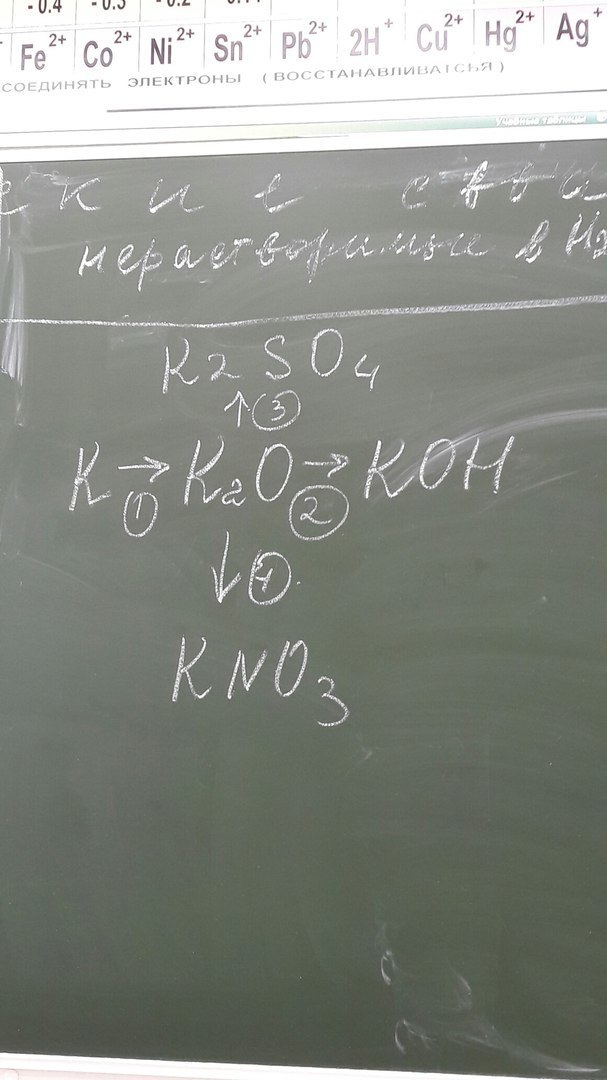 - 0.4 - 0.3 - 0.2
Fe2+ Co2+ Ni2+ Sn2+ Pb2+ 2H+ Cu2+ Hg2+ Ag+
СОЕДИНЯТЬ ЭЛЕКТРОНЫ (ВОССТАНАВЛИВАТСЬЯ)
Учебные таблицы
нерастворимые в H2
K2SO4
↑ 3
K → K2O → KOH
1 2
↓ 4
KNO3